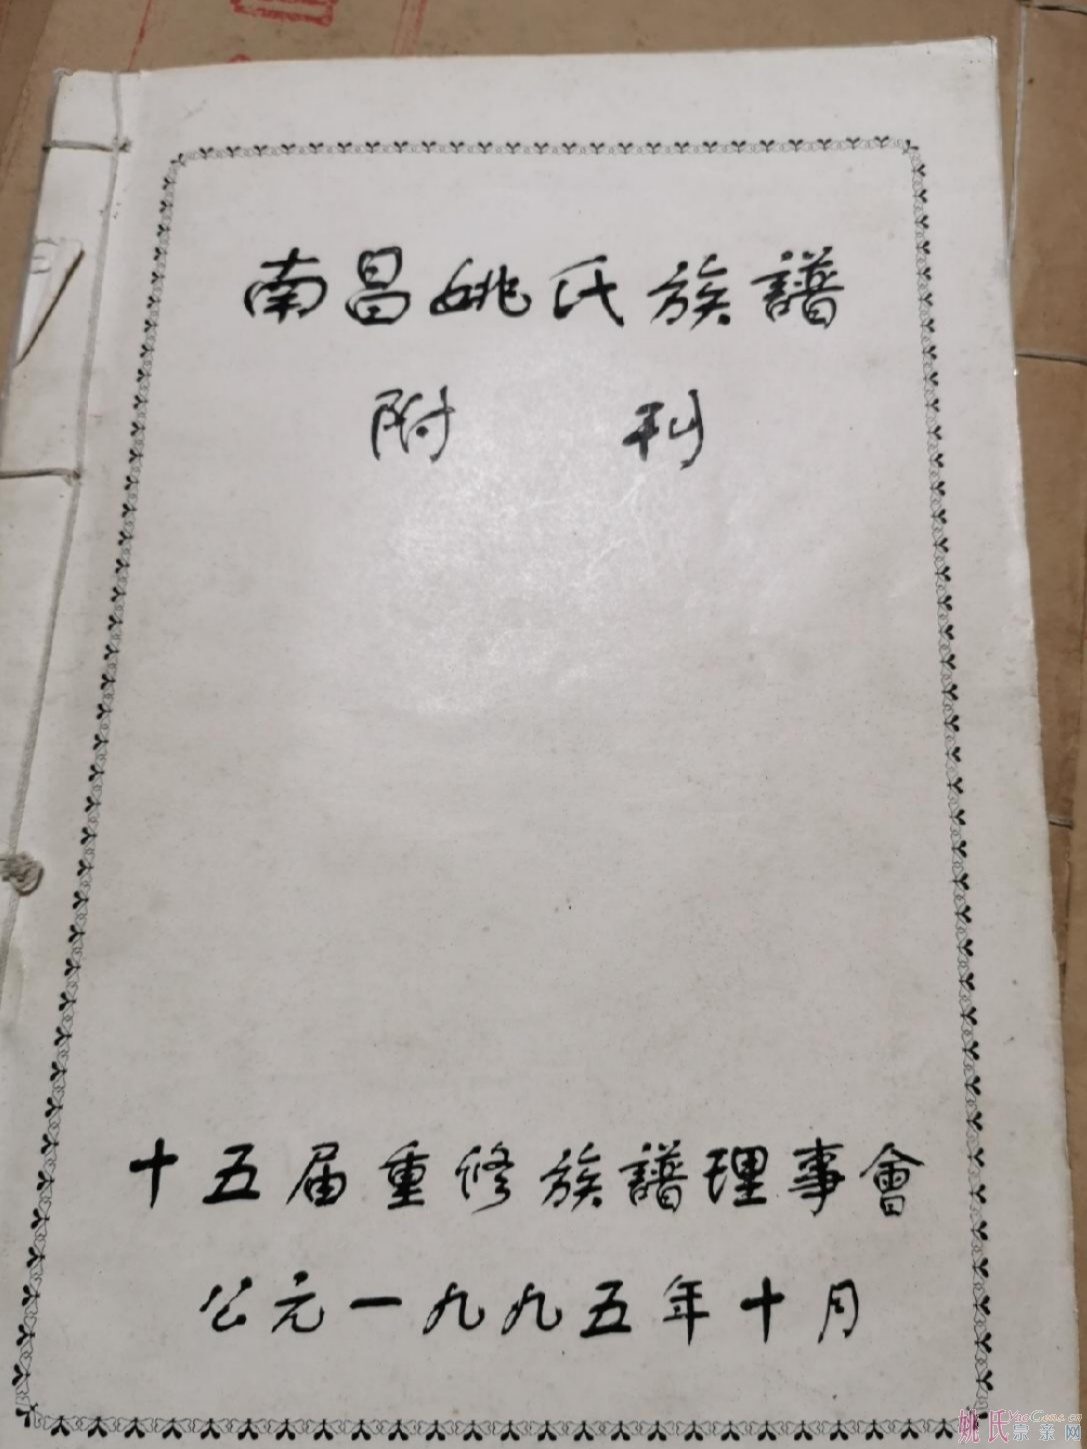 南昌姚氏族譜
附刊
十五届重修族譜理事會
公元一九九五年十月
姚氏宗亲网
YaoGens.cn